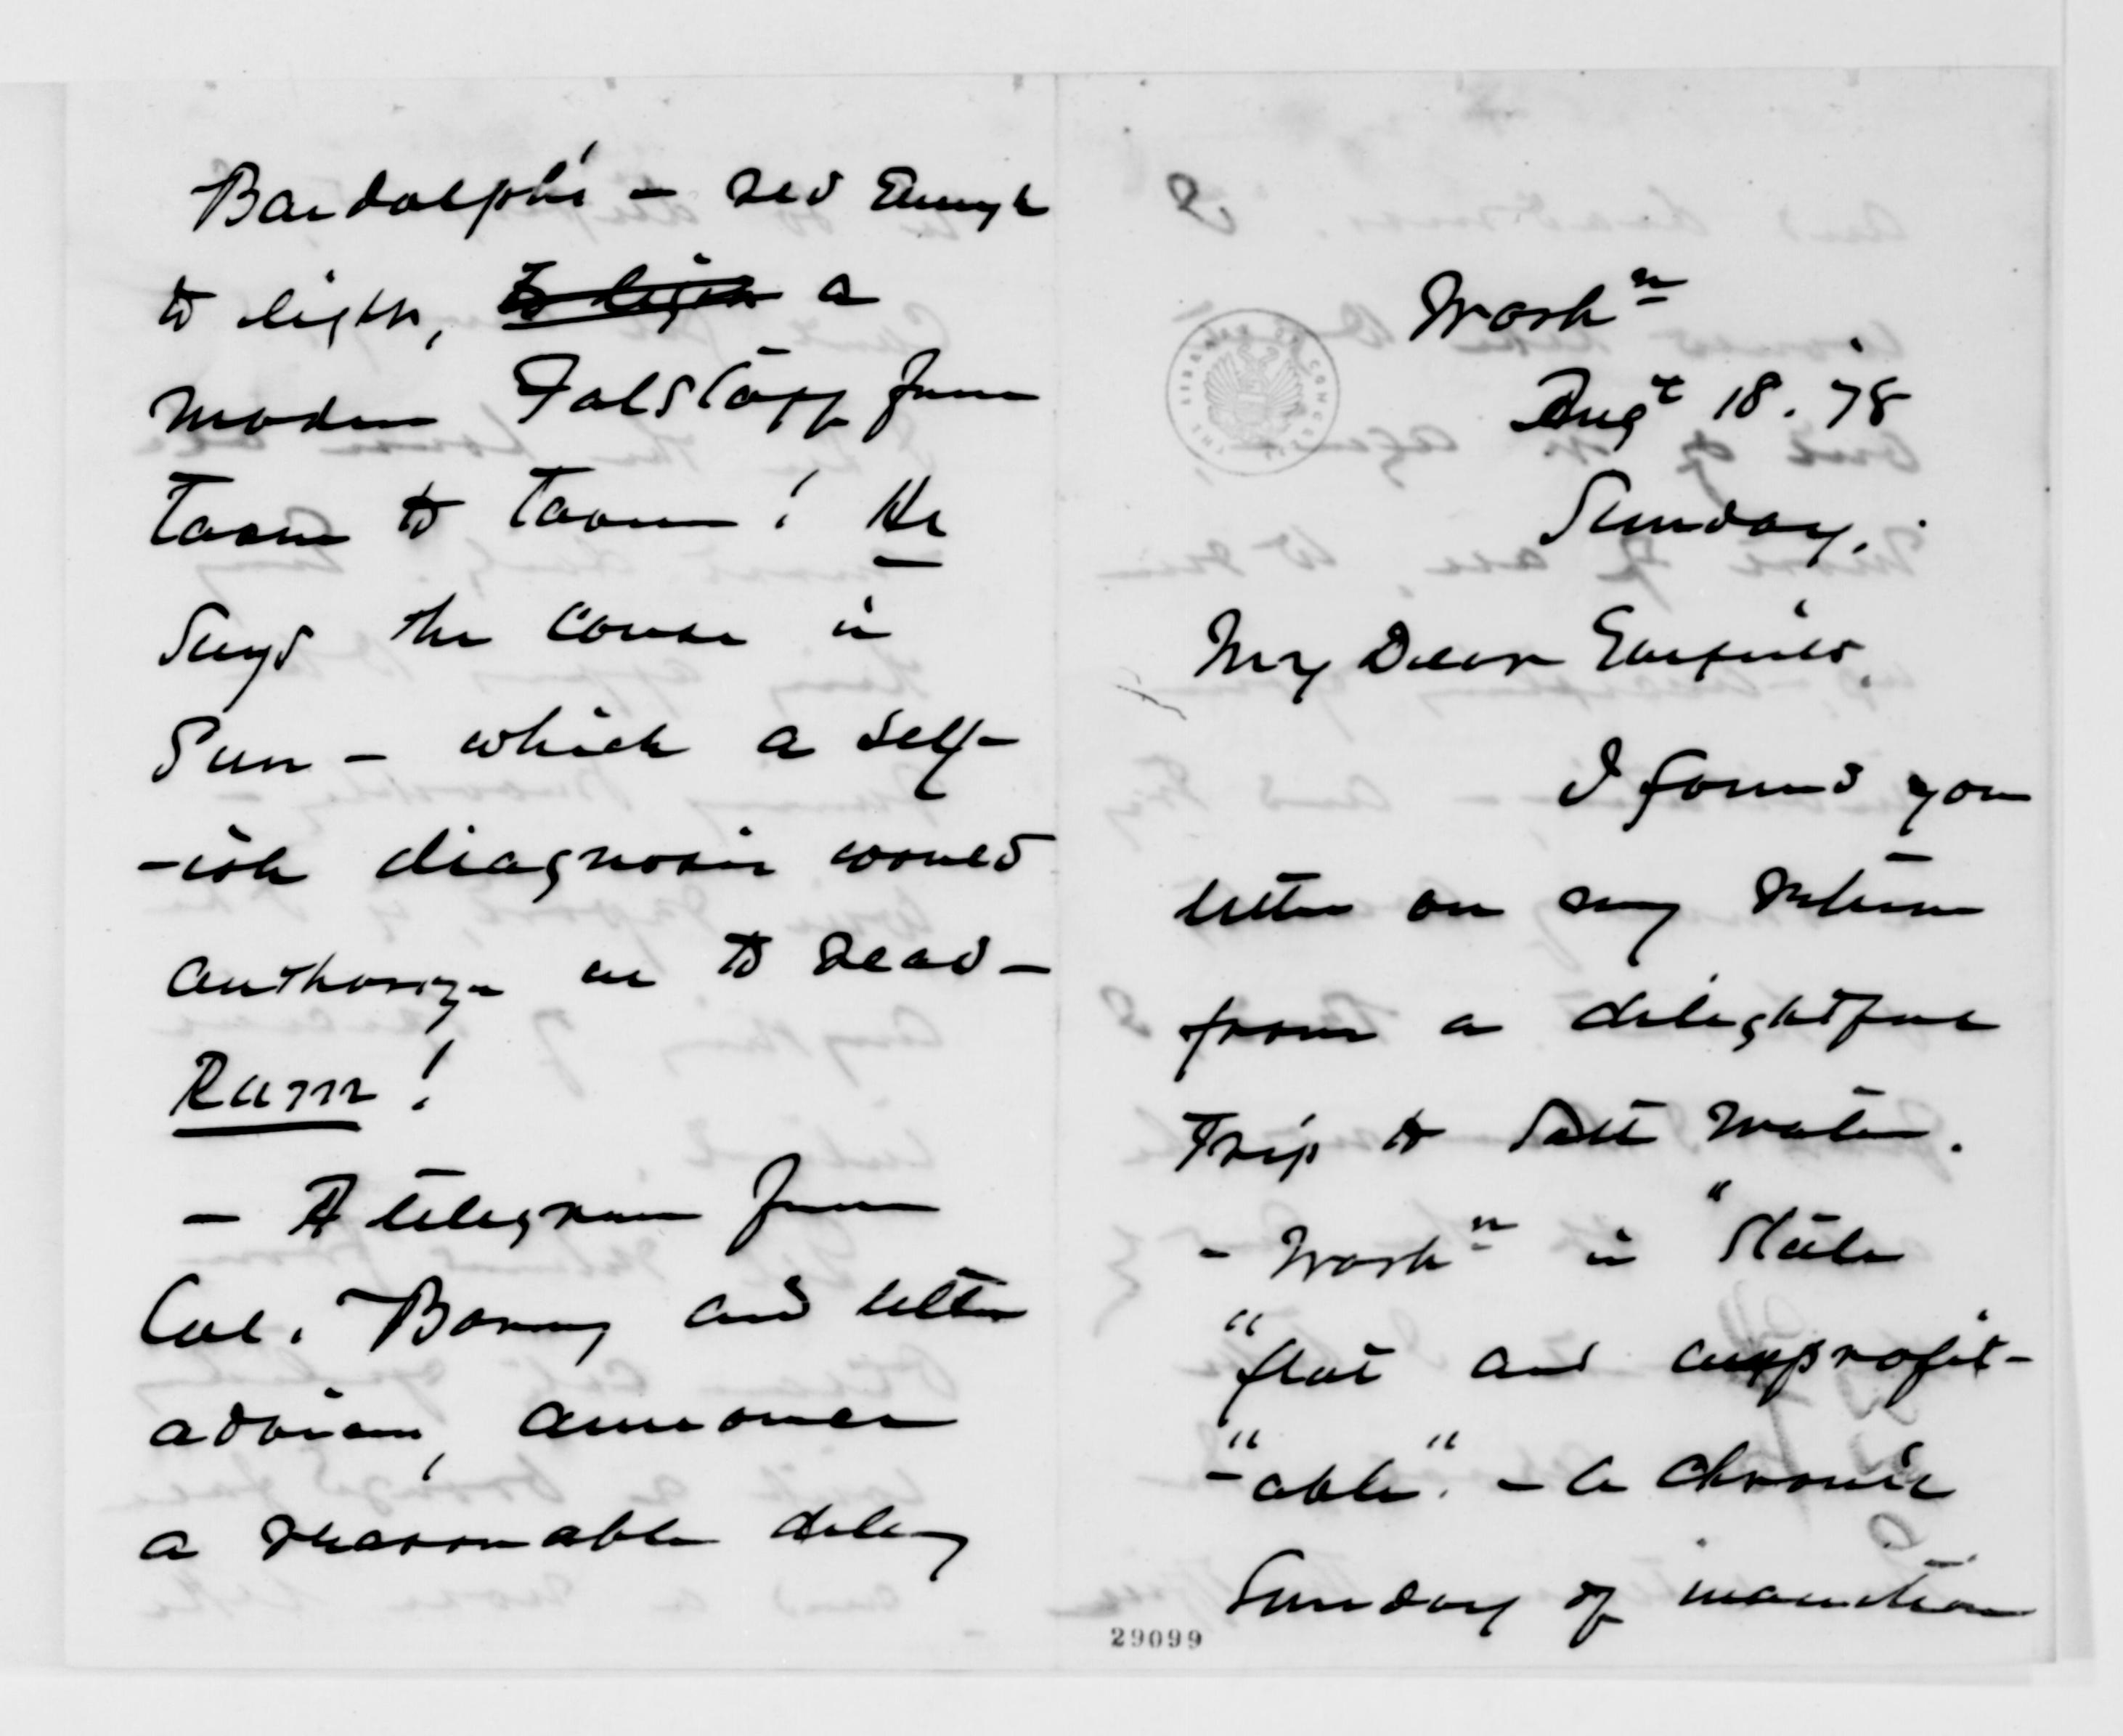 Bardolph's – red enough
to light, to light a
modern Falstaff from
Tavern to Tavern! He
says the cause is
Sun – which a self-
-ish diagnosis would
authorize us to read –
Rum!
– A telegram from
Col. and letter
announces
a reasonable delay
Washn
Augt 18. 78
Sunday.
My Dear Garfield.
I found your
letter on my return
from a delightful
Trip to Salt Water.
– Washn is "Stale
"flat and unprofit-
-"able". – A Chronic
Sunday of inanition
29099